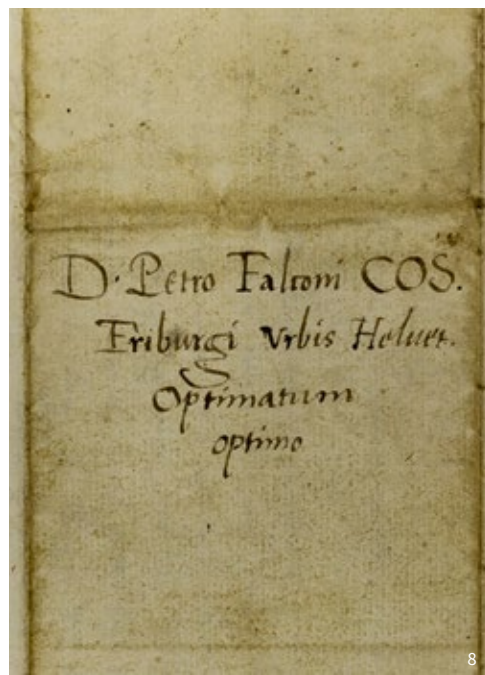 D. Petro Falconi COS.
Friburgi Vrbis Heluet.
Optimatum
optimo
8